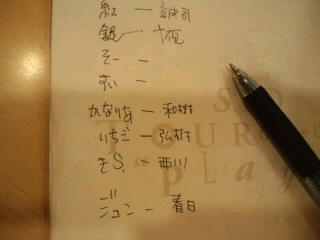 紅 ― 誠司
銀 ― 十夜
そー ―
すい ―
かなりあ ― 和樹
いちご ― 弘樹
そS. ― 西川
ジョン ― 春日
TOUR
"play